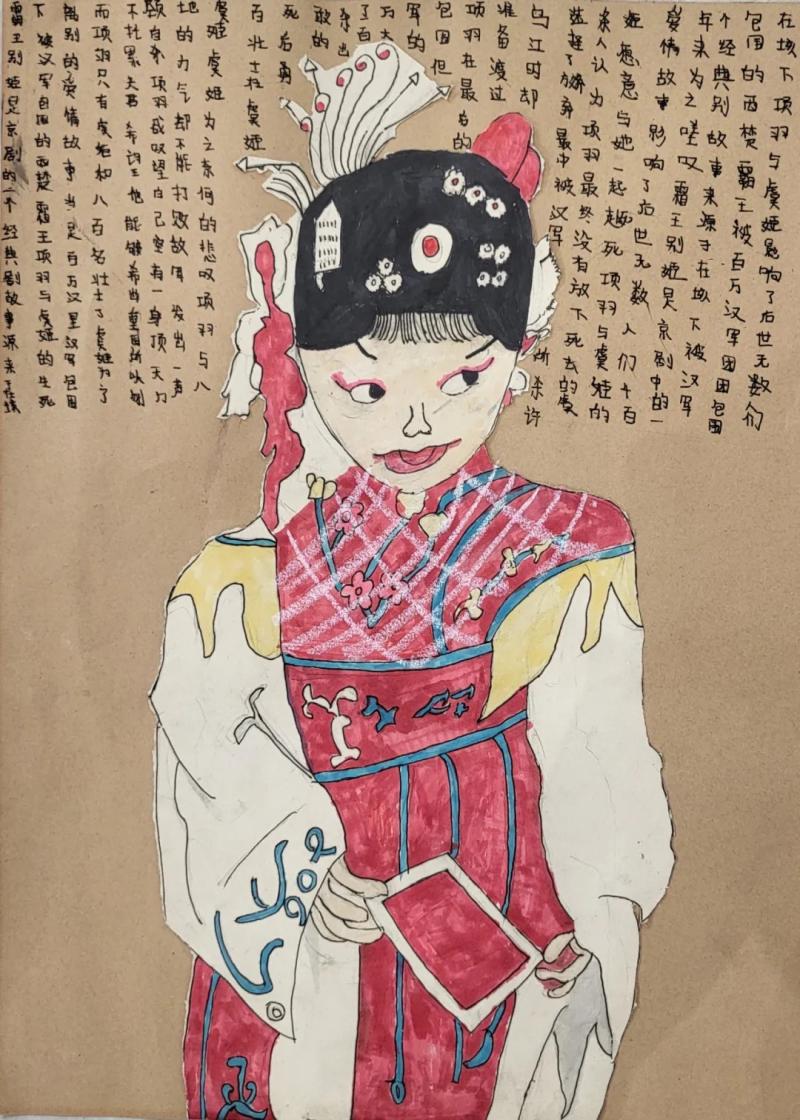 在垓下项羽与虞姬影响了后世无数们
包围的西楚霸王被百万汉军团团包围
个经典别故事来源于在垓下被汉军
年来为之嗟叹霸王别姬是京剧中的一
爱情故事影响了后世无数人们千百
姬愿意与她一起赴死项羽与虞姬的
杀人认为项羽最终没有放下死去的虞
了放弃最中被汉军所杀许
乌江时却
准备渡过
项羽在最后的
包围但
军的
万大
了百
杀出
敢的
死后勇
百壮士在虞姬
虞姬虞姬为之奈何的悲叹项羽与八
地的力气却不能打败敌军发出一声
自杀项羽感叹望自己空有一身顶天力
不扎累夫君希望王他能够希当重围所以刎
而项羽只有虞姬和八百名壮士了虞姬为了
离别的爱情故事当是百万汉里汉军包围
下被汉军包围的西楚霸王项羽与虞姬的生死
霸王别姬是京剧的一个经典剧故事源来于在垓